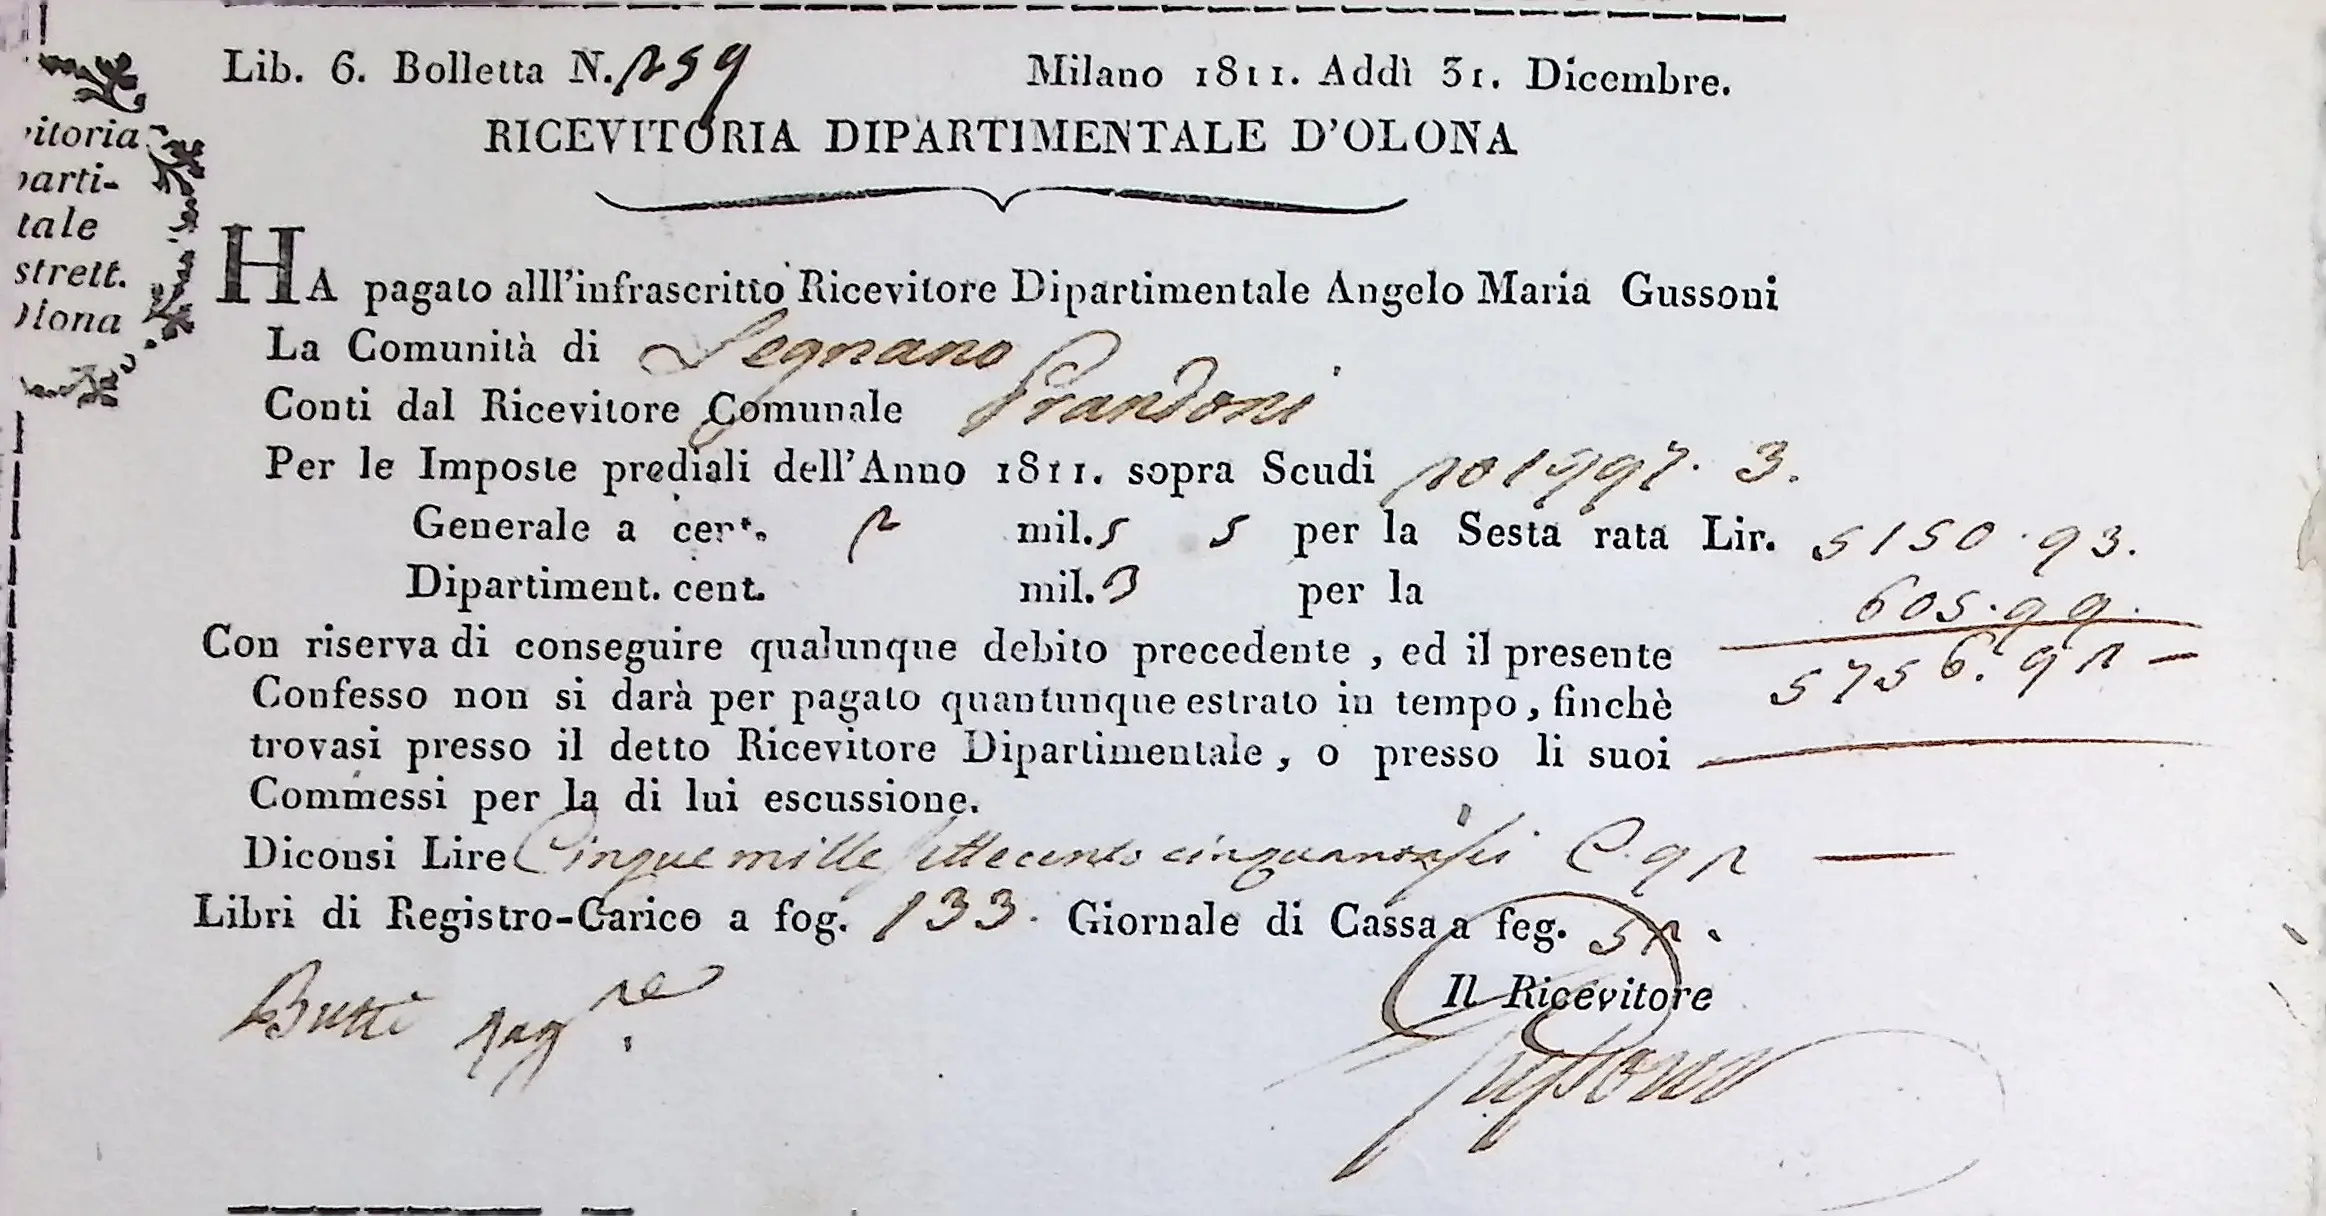 Lib. 6. Bolletta N. 259 Milano 1811. Addì 31. Dicembre.
RICEVITORIA DIPARTIMENTALE D'OLONA
itoria
parti-
tale
strett.
Olona
HA pagato alll'infrascritto Ricevitore Dipartimentale Angelo Maria Gussoni
La Comunità di Legnano
Conti dal Ricevitore Comunale Prandoni
Per le Imposte prediali dell'Anno 1811. sopra Scudi 201997. 3.
Generale a cent. 2 mil. 5 5 per la Sesta rata Lir. 5150.93.
Dipartiment. cent. mil. 3 per la 605.99.
Con riserva di conseguire qualunque debito precedente, ed il presente 5756.92 —
Confesso non si darà per pagato quantunque estrato in tempo, finchè
trovasi presso il detto Ricevitore Dipartimentale, o presso li suoi
Commessi per la di lui escussione.
Diconsi Lire Cinque mille settecento cinquantasei C. 92 —
Libri di Registro-Carico a fog. 133. Giornale di Cassa a feg. 52.
Il Ricevitore
Butti Rag.re
Gussoni